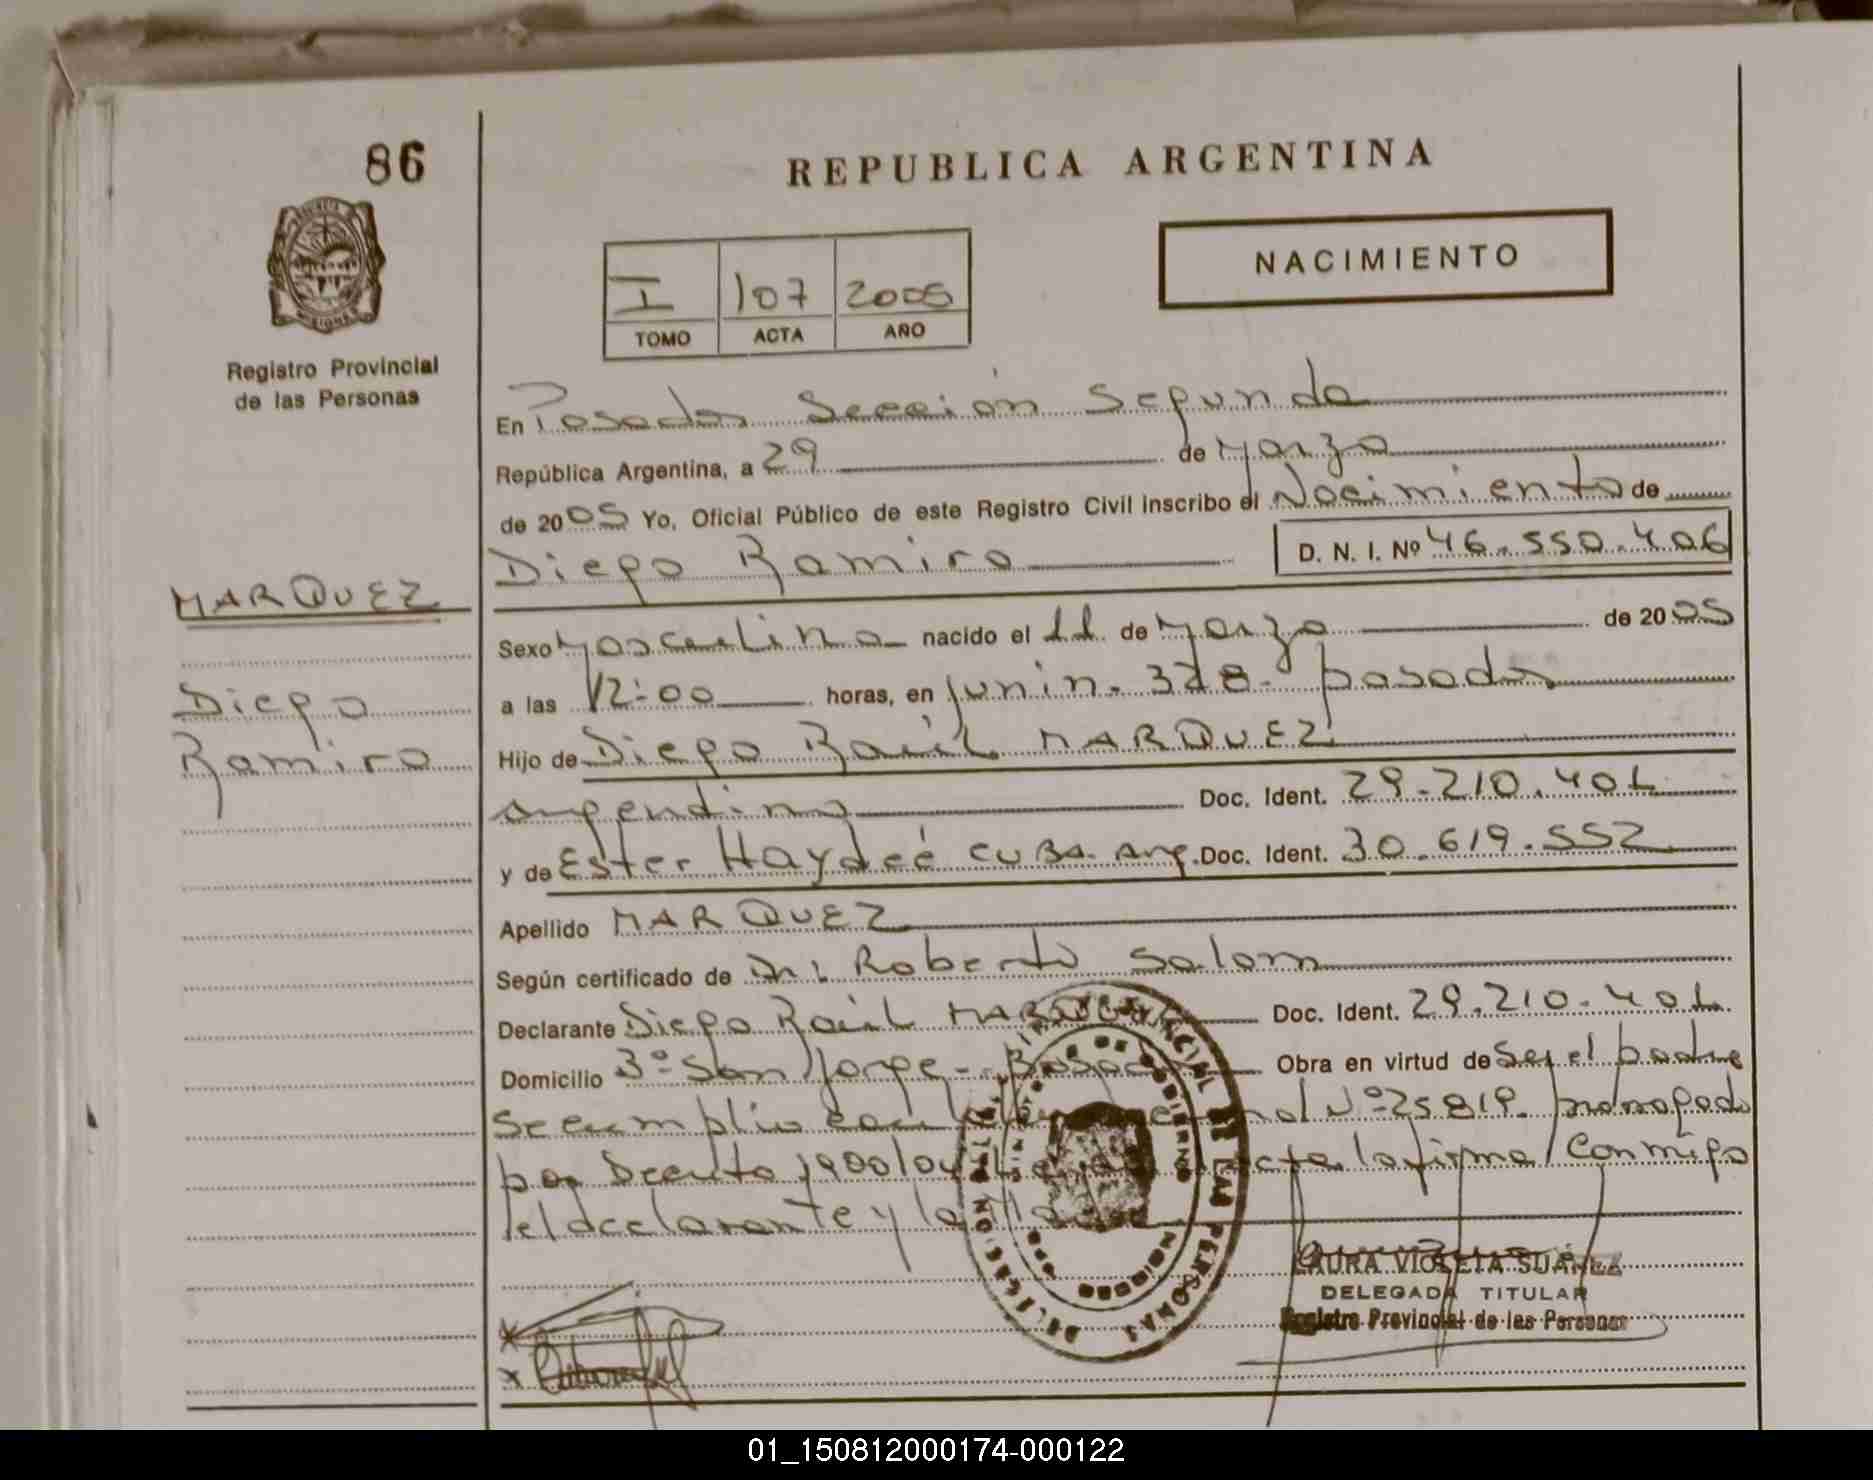 86
REPUBLICA ARGENTINA
NACIMIENTO
I 107 2005
TOMO ACTA AÑO
Registro Provincial
de las Personas
En Posadas Sección Segunda
República Argentina, a 29 de Marzo
de 2005 Yo, Oficial Público de este Registro Civil inscribo el Nacimiento de
Diego Ramiro D. N. I. Nº 46.550.406
MARQUEZ
Diego
Ramiro
Sexo Masculino nacido el 11 de Marzo de 2005
a las 12:00 horas, en Junin. 328- Posadas
Hijo de Diego Raúl MARQUEZ
argentino Doc. Ident. 29.210.401
y de Ester Haydeé CUBA. Arg. Doc. Ident. 30.619.552
Apellido MARQUEZ
Según certificado de Dr. Roberto Salom
Declarante Diego Raúl MARQUEZ Doc. Ident. 29.210.401
Domicilio 3º San Jorge - Posadas Obra en virtud de Ser el padre
Se cumplio con Nº 25819. prorrogado
por Decreto 1900/04 acta la firma Conmigo
el declarante y la Madre
LAURA VIOLETA SUÁREZ
DELEGADA TITULAR
Registro Provincial de las Personas
01_150812000174-000122